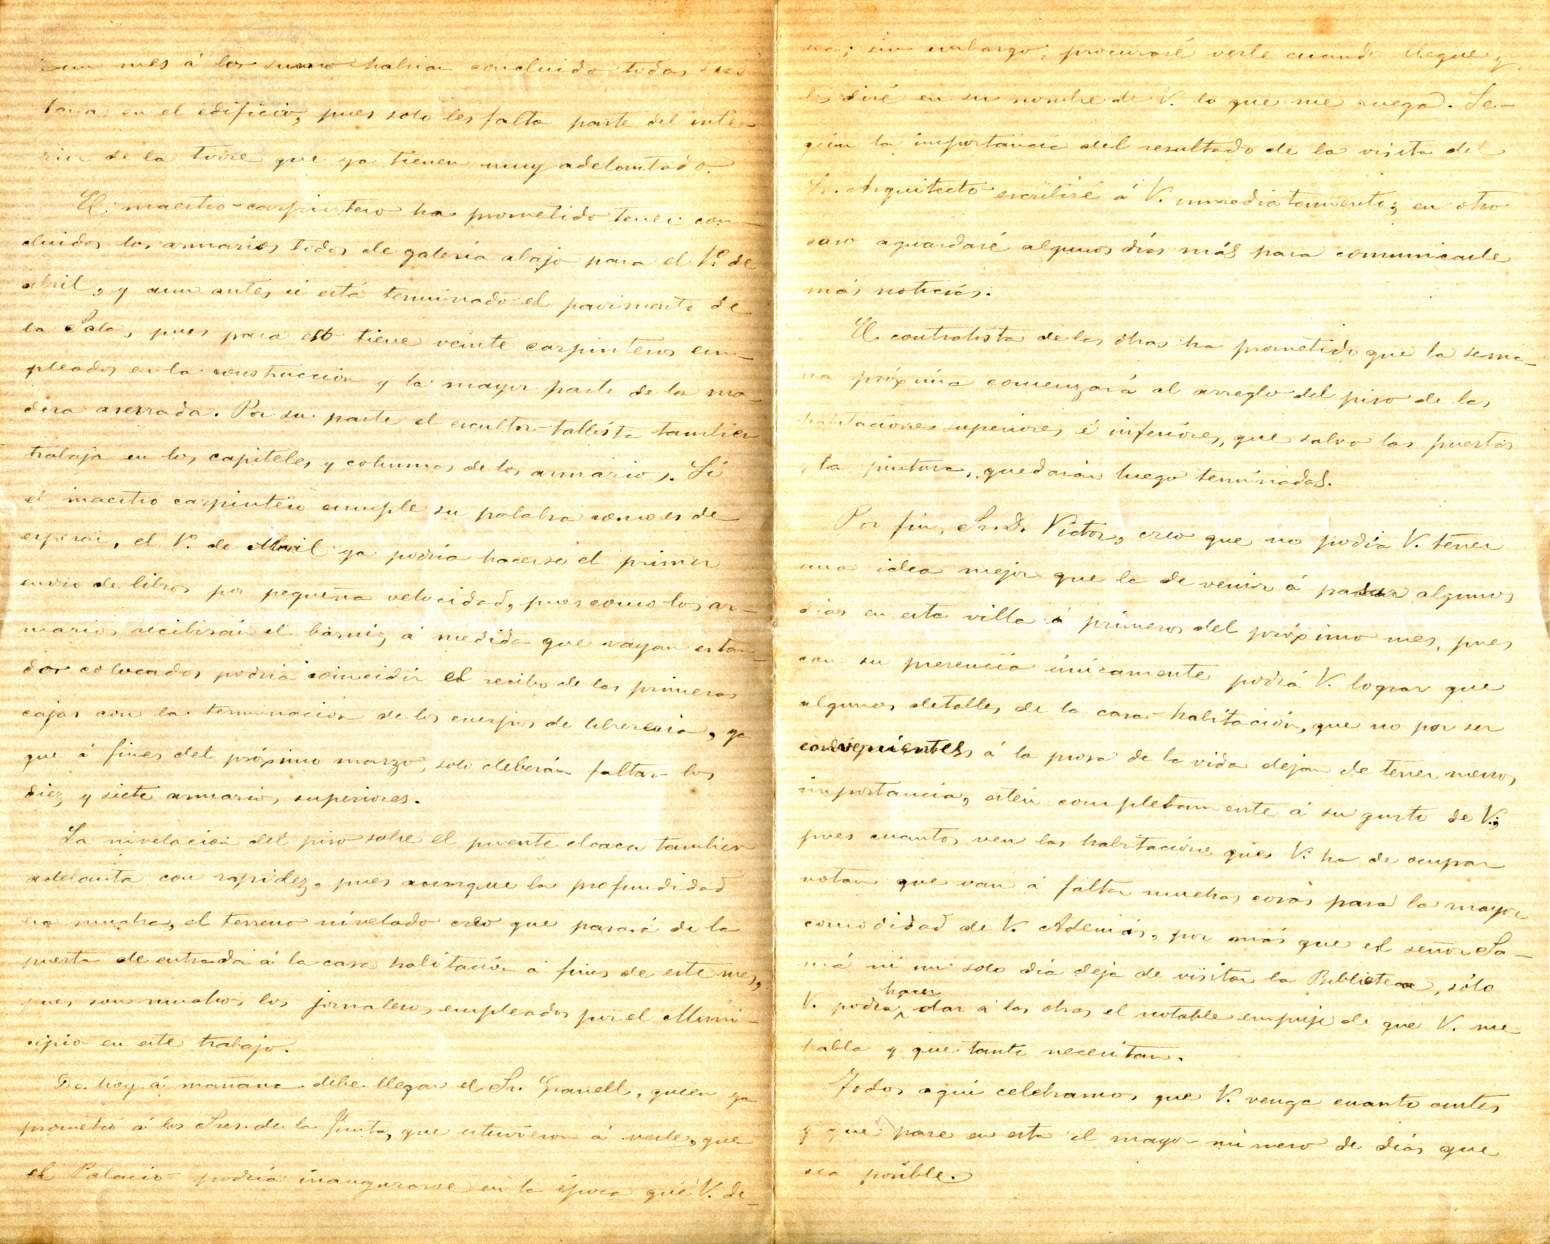 un mes á lo sumo habrán concluido todas sus
tareas en el edificio, pues solo les falta parte del inte-
rior de la torre que ya tienen muy adelantado.
El maestro-carpintero ha prometido tener con-
cluidos los armarios todos de galería abajo para el 1º de
abril, y aun antes si está terminado el pavimento de
la Sala, pues para esto tiene veinte carpinteros em-
pleados en la construcción y la mayor parte de la ma-
dera aserrada. Por su parte el escultor-tallista tambien
trabaja en los capiteles y columnas de los armarios. Si
el maestro carpintero cumple su palabra como es de
esperar, el 1º de Abril ya podría hacerse el primer
envio de libros por pequeña velocidad, pues como los ar-
marios recibirán el barniz á medida que vayan estan-
do colocados podría coincidir el recibo de las primeras
cajas con la terminación de los cuerpos de libreria, ya
que á fines del próximo marzo, solo deberán faltar los
diez y siete armarios superiores.
La nivelación del piso sobre el puente cloaca tambien
adelanta con rapidez, pues aunque la profundidad
es mucha, el terreno nivelado creo que pasará de la
puerta de entrada á la casa habitación á fines de este mes,
pues son muchos los jornaleros empleados por el Muni-
cipio en este trabajo.
De hoy á mañana debe llegar el Sr. Granell, quien ya
prometió á los Sres. de la Junta, que estuvieron á verle, que
el Palacio podría inaugurarse en la época que V. de-
sea; sin embargo, procuraré verle cuando llegue y
le diré en su nombre de V. lo que me ruega. Se-
gún la importancia del resultado de la visita del
Sr. Arquitecto escribiré á V. inmediatamente; en otro
caso aguardaré algunos días más para comunicarle
más noticias.
El contratista de las obras ha prometido que la sema-
na próxima comenzará al arreglo del piso de las
habitaciones superiores é inferiores, que salvo las puertas
y la pintura, quedarán luego terminadas.
Por fin, Sr. D. Victor, creo que no podía V. tener
una idea mejor que la de venir á pasar algunos
días en esta villa á primeros del próximo mes, pues
con su presencia únicamente podrá V. lograr que
algunos detalles de la casa-habitación, que no por ser
convenientes á la prosa de la vida dejan de tener menos
importancia, estén completamente á su gusto de V.;
pues cuantos ven las habitaciones que V. ha de ocupar
notan que van á faltar muchas cosas para la mayor
comodidad de V. Además, por más que el señor Sa-
má ni un solo día deja de visitar la Biblioteca, sólo
V. podría hacer dar á las obras el notable empuje de que V. me
habla y que tanto necesitan.
Todos aquí celebramos que V. venga cuanto antes
y que pase en esta el mayor número de días que
sea posible.